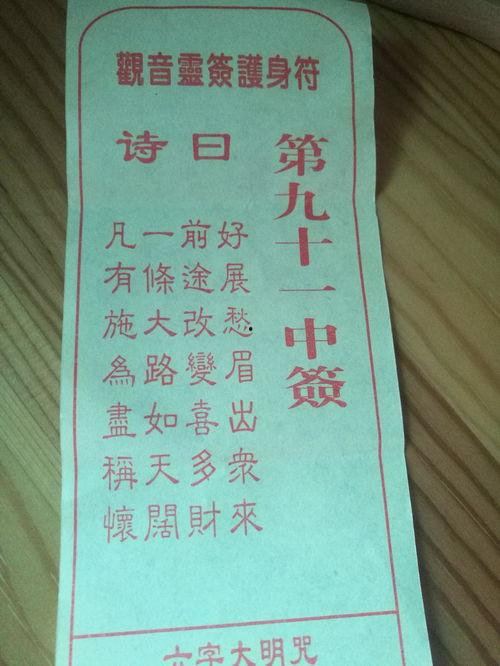 觀音靈簽護身符
第九十一中簽
诗曰
好展愁眉出衆來
前途改變喜多財
一條大路如天闊
凡有施為盡稱懷
六字大明咒